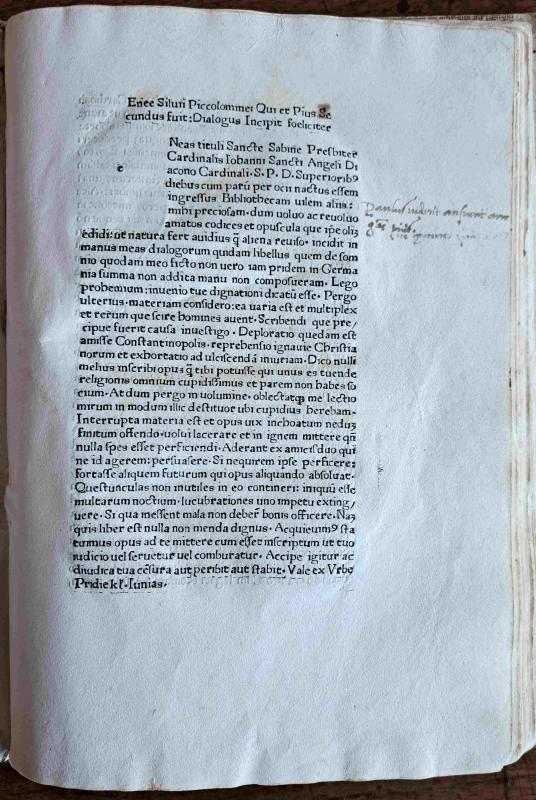 Enee Siluii Piccolominei Qui et Pius Se
cundus fuit: Dialogus Incipit foeliciter
e
Neas tituli Sancte Sabine Presbiter
Cardinalis Iohanni Sancti Angeli Di
acono Cardinali. S. P. D. Superioribꝯ
diebus cum parũ per ocii nactus essem
ingressus Bibliothecam uilem aliis:
mihi preciosam. dum uoluo ac reuoluo
amatos codices et opuscula que ip̃e olĩ
edidi: ut natura fert auidius q̃ aliena reuiso. incidit in
manus meas dialogorum quidam libellus quem de som
nio quodam meo ficto non uero iam pridem in Germa
nia summa non addita manu non composueram. Lego
prohemium: inuenio tue dignationi dicatũ esse. Pergo
ulterius. materiam considero: ea uaria est et multiplex
et rerum que scire homines auent. Scribendi que pre/
cipue fuerit causa inuestigo. Deploratio quedam est
amisse Constantinopolis. reprehensio ignauie Christia
norum et exhortatio ad ulciscendã iniuriam. Dico nulli
melius inscribi opus q̃ tibi potuisse qui unus es tuende
religionis omnium cupidissimus et parem non habes so
cium. At dum pergo in uolumine. oblectatqꝫ me lectio
mirum in modum illic destituor ubi cupidius herebam.
Interrupta materia est et opus uix inchoatum neduꝫ
finitum offendo. uolui lacerare et in ignem mittere qñ
nulla spes esset perficiendi. Aderant ex amicis duo qui
ne id agerem: persuasere. Si nequirem ipse perficere:
fortasse aliquem futurum qui opus aliquando absoluat.
Questiunculas non inutiles in eo contineri: iniquũ esse
multarum noctium. lucubrationes uno impetu exting/
uere. Si qua inessent mala non deber̃ bonis officere. Naꝫ
quis liber est nulla non menda dignus. Acquieuimꝯ sta
tuimus opus ad te mittere cum esset inscriptum ut tuo
iudicio uel seruetur uel comburatur. Accipe igitur ac
diiudica tua cẽsura aut peribit aut stabit. Vale ex Vrbe
Pridie kł. Iunias.